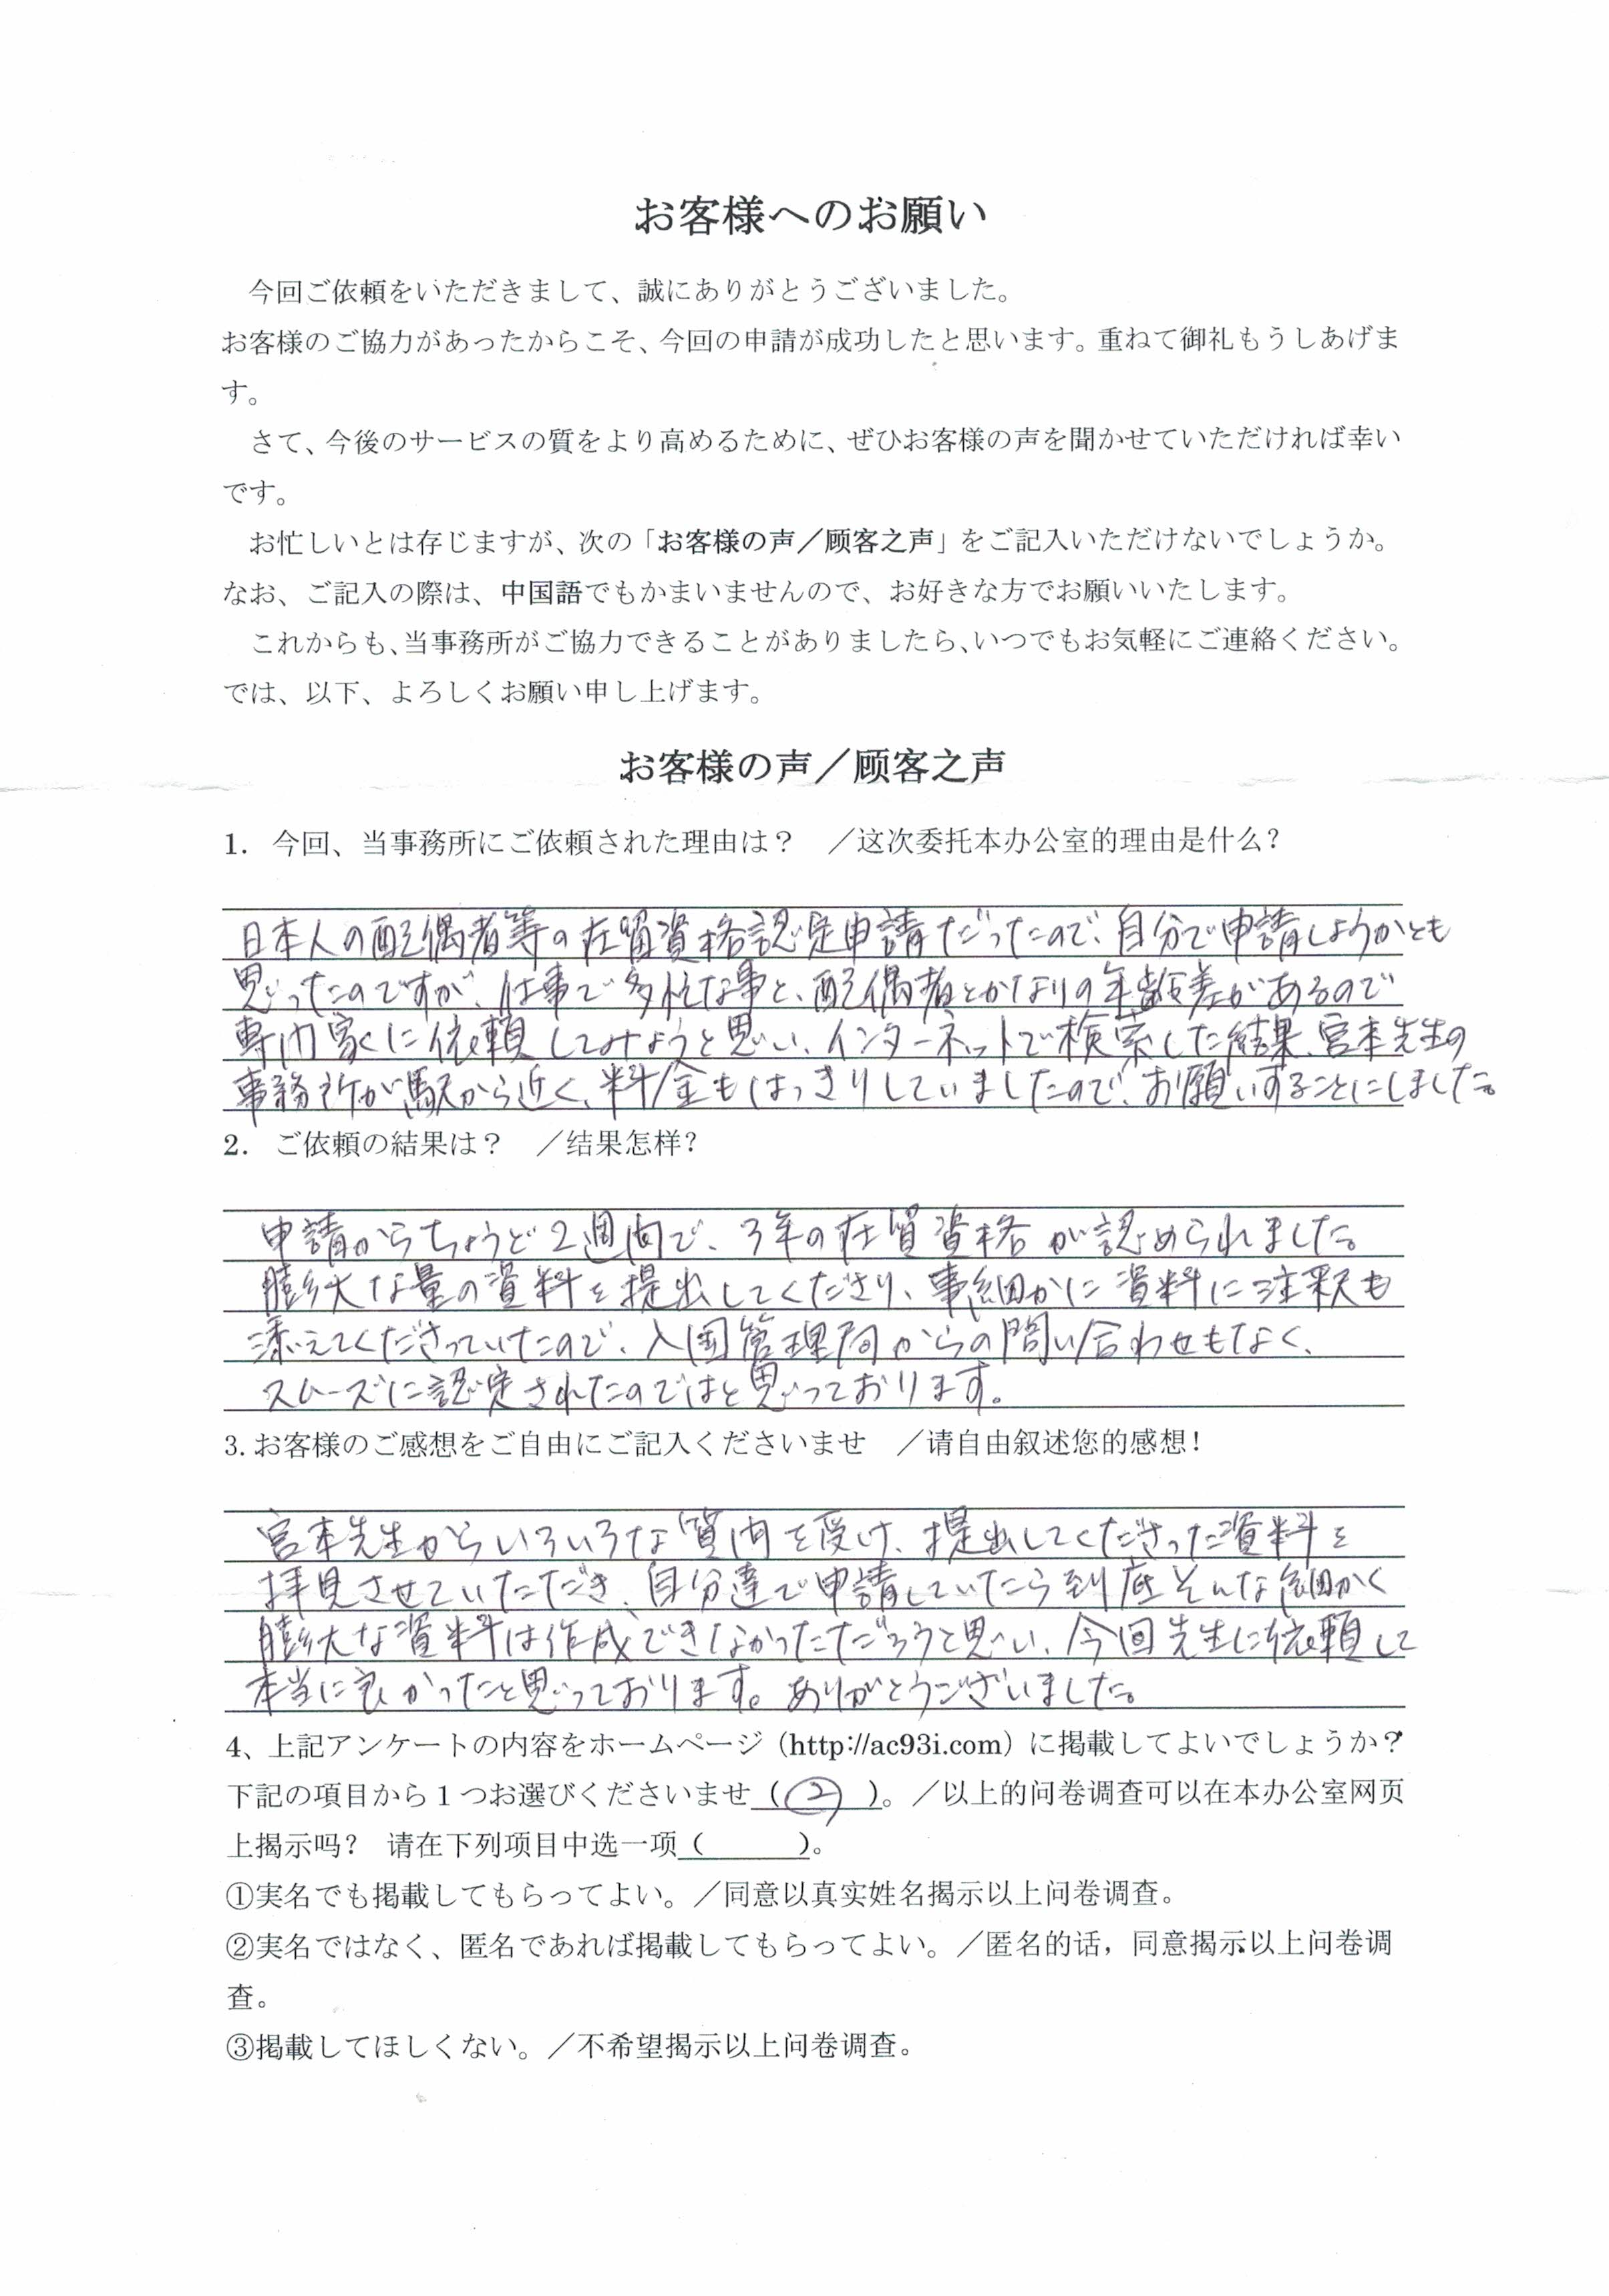 お客様へのお願い
今回ご依頼をいただきまして、誠にありがとうございました。
お客様のご協力があったからこそ、今回の申請が成功したと思います。重ねて御礼もうしあげま
す。
さて、今後のサービスの質をより高めるために、ぜひお客様の声を聞かせていただければ幸い
です。
お忙しいとは存じますが、次の「お客様の声／顾客之声」をご記入いただけないでしょうか。
なお、ご記入の際は、中国語でもかまいませんので、お好きな方でお願いいたします。
これからも、当事務所がご協力できることがありましたら、いつでもお気軽にご連絡ください。
では、以下、よろしくお願い申し上げます。
お客様の声／顾客之声
1． 今回、当事務所にご依頼された理由は？　／这次委托本办公室的理由是什么？
日本人の配偶者等の在留資格認定申請だったので、自分で申請しようかとも
思ったのですが、仕事で多忙な事と、配偶者とかなりの年齢差があるので
専門家に依頼してみようと思い、インターネットで検索した結果、宮本先生の
事務所が駅から近く、料金もはっきりしていましたので、お願いすることにしました。
2． ご依頼の結果は？　／结果怎样？
申請からちょうど2週間で、3年の在留資格が認められました。
膨大な量の資料を提出してくださり、事細かに資料に注釈も
添えてくださっていたので、入国管理局からの問い合わせもなく、
スムーズに認定されたのではと思っております。
3. お客様のご感想をご自由にご記入くださいませ　／请自由叙述您的感想！
宮本先生からいろいろな質問を受け、提出してくださった資料を
拝見させていただき、自分達で申請していたら到底そんな細かく
膨大な資料は作成できなかっただろうと思い、今回先生に依頼して
本当に良かったと思っております。ありがとうございました。
4、上記アンケートの内容をホームページ（http://ac93i.com）に掲載してよいでしょうか？
下記の項目から１つお選びくださいませ（②）。／以上的问卷调查可以在本办公室网页
上揭示吗？ 请在下列项目中选一项（　　）。
①実名でも掲載してもらってよい。／同意以真实姓名揭示以上问卷调查。
②実名ではなく、匿名であれば掲載してもらってよい。／匿名的话，同意揭示以上问卷调
查。
③掲載してほしくない。／不希望揭示以上问卷调查。